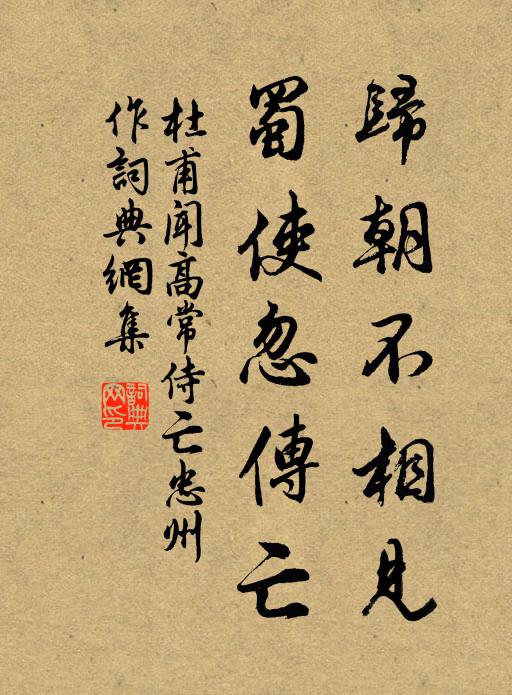 歸朝不相見
蜀使忽傳亡
杜甫聞高常侍亡忠州
作詞典網集
詞典
网印